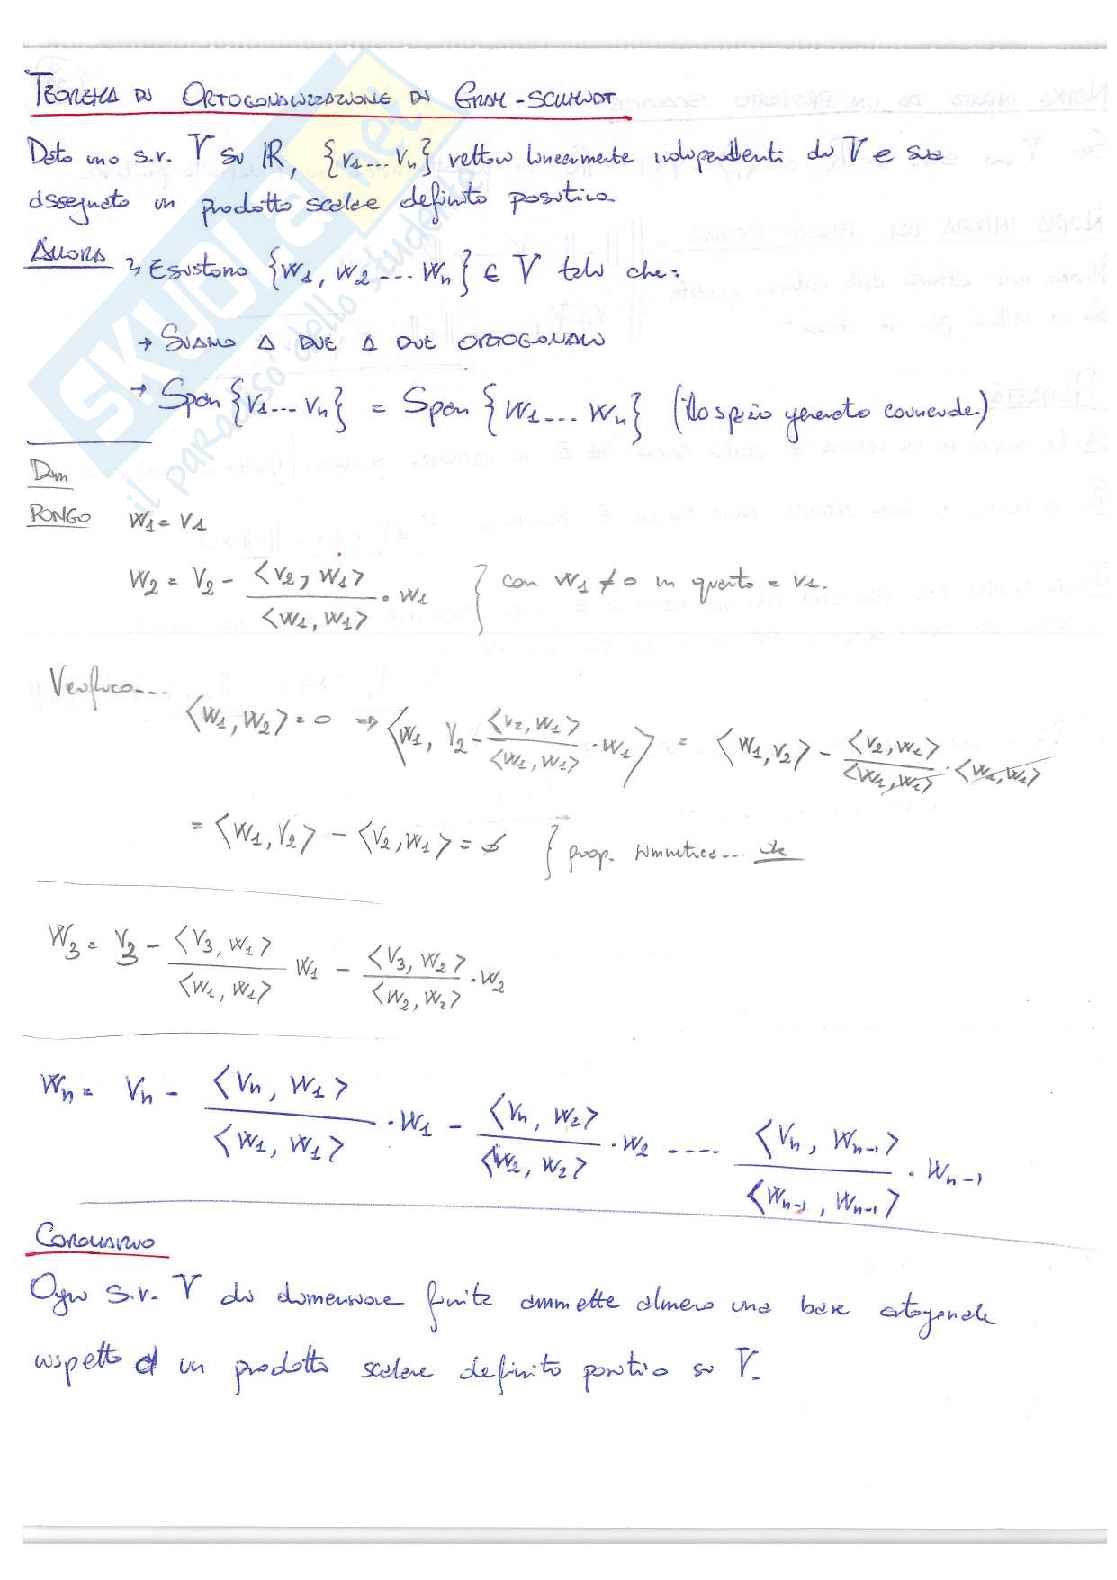 TEOREMA DI ORTOGONALIZZAZIONE DI GRAM-SCHMIDT
Dato uno s.v. V su ℝ, {v1...vn} vettori linearmente indipendenti di V e sia
assegnato un prodotto scalare definito positivo.
ALLORA → Esistono {w1, w2 ... wn} ∈ V tali che:
→ SIANO A DUE A DUE ORTOGONALI
→ Span{v1...vn} = Span{w1...wn} (lo spazio generato coincide.)
Dim
PONGO w1 = v1
w2 = v2 - <v2, w1>/<w1, w1> · w1 } con w1 ≠ 0 in quanto = v1.
Verifico...
<w1, w2> = 0 → <w1, v2 - <v2, w1>/<w1, w1> · w1> = <w1, v2> - <v2, w1>/<w1, w1> · <w1, w1>
= <w1, v2> - <v2, w1> = 0 } prop. simmetrica...
w3 = v3 - <v3, w1>/<w1, w1> w1 - <v3, w2>/<w2, w2> · w2
wn = vn - <vn, w1>/<w1, w1> · w1 - <vn, w2>/<w2, w2> · w2 .... <vn, wn-1>/<wn-1, wn-1> · wn-1
COROLLARIO
Ogni s.v. V di dimensione finita ammette almeno una base ortogonale
rispetto a un prodotto scalare definito positivo su V.
SKUOLA.net
il paradiso dello studente